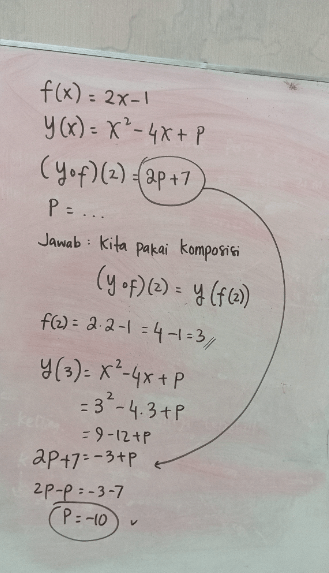 f(x) = 2x-1
y(x) = x² - 4x + P
(y∘f)(2) = 2p+7
P = ...
Jawab : Kita pakai komposisi
(y∘f)(2) = y(f(2))
f(2) = 2.2-1 = 4-1=3//
y(3) = x²-4x + P
= 3² - 4.3 + P
= 9 - 12 + P
2P+7 = -3+P
2P-P = -3-7
P = -10 ✓